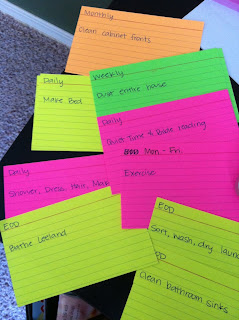 Monthly
Clean cabinet fronts
Weekly
Dust entire house
Daily
Make Bed
Daily
Quiet Time & Bible reading
Mon - Fri
Exercise
Daily
Shower, Dress, Hair,
EOD
Bathe Leeland
EOD
Sort, wash, dry
Clean bathroom sinks